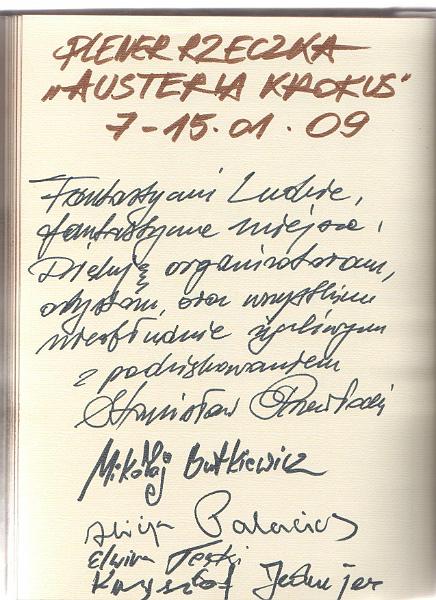 PLENER RZECZKA
„AUSTERIA KROKUS"
7-15.01.09
Fantastyczni Ludzie,
fantastyczne miejsce!
Dziękuję organizatorom,
artystom, oraz wszystkim
nieobłudnie życzliwym
z podziękowaniem
Stanisław
Mikołaj Butkiewicz
Alicja
Elwira Tęski
Krzysztof